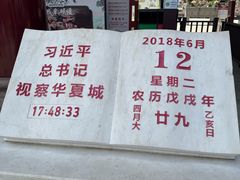 习近平
总书记
视察华夏城
17:48:33
2018年6月
12
星期二
农历戊戌年
四月大
廿九
乙亥日